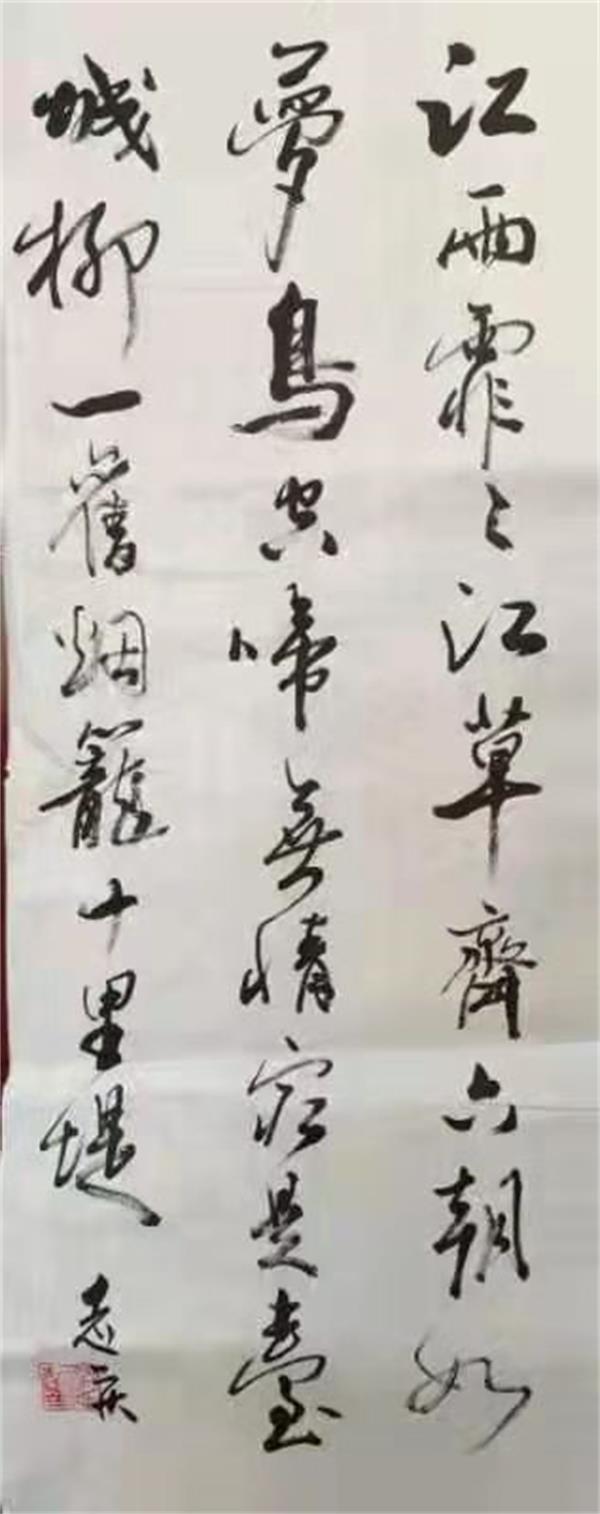 江雨霏〻江草齊六朝如
夢鳥空啼無情最是臺
城柳一舊烟籠十里堤
志庆